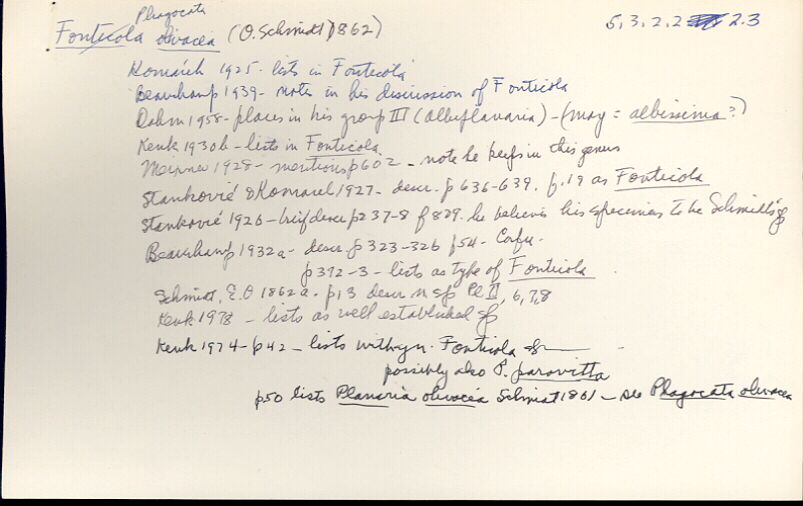 Phagocata
Fonticola olivacea (O. Schmidt 1862) 5, 3, 2, 2 2.3
Komárek 1925 - lists in Fonticola
Beauchamp 1939 - notes in his discussion of Fonticola
Dahm 1958 - places in his group III (Albiflavaria) - (may = albissima?)
Kenk 1930b - lists in Fonticola
Meixner 1928 - mentions p602 - note he keeps in this genus
Stanković & Komarek 1927 - descr. p 636-639. f.19 as Fonticola
Stankovic 1926 - brief descr p237-8 f 8 he believes his specimens to be Schmidt's sp
Beauchamp 1932a - descr. p 323-326 f 54 - Corfu.
p 392-3 - lists as type of Fonticola
Schmidt, E.O 1862a. p13 descr n sp Pl II, 6,7,8
Kenk 1978 - lists as well established sp
Kenk 1974 - p42 - lists with gen. Fonticola
possibly also P. paravitta
p50 lists Planaria olivacea Schmidt 1861 - see Phagocata olivacea